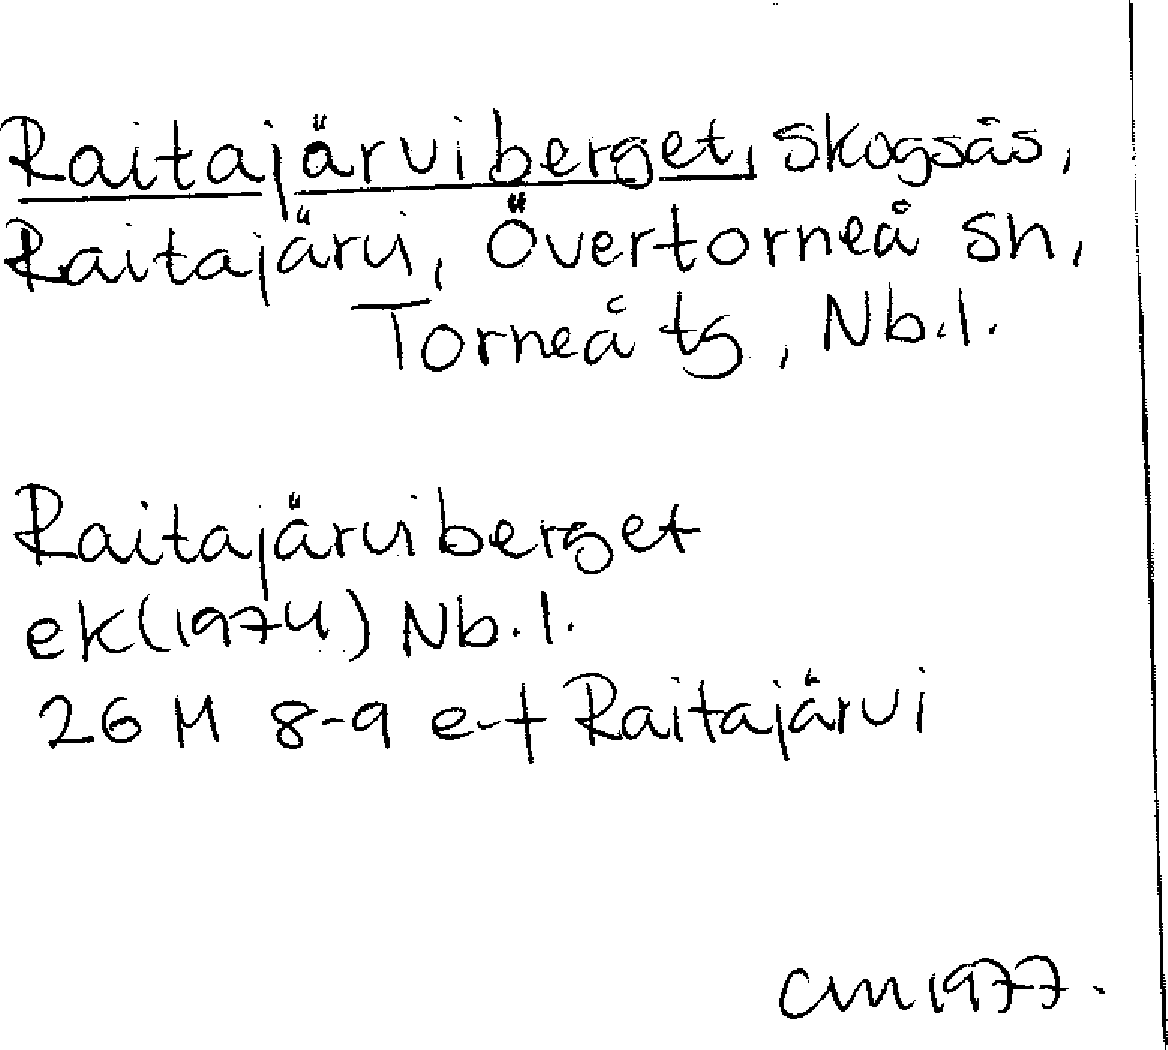 Raitajärviberget, skogsås,
Raitajärvi, Övertorneå sn,
Torneå tg, Nb.l.
Raitajärviberget
ek(1974) Nb.l.
26 M 8-9 e-f Raitajärvi
CM 1977.